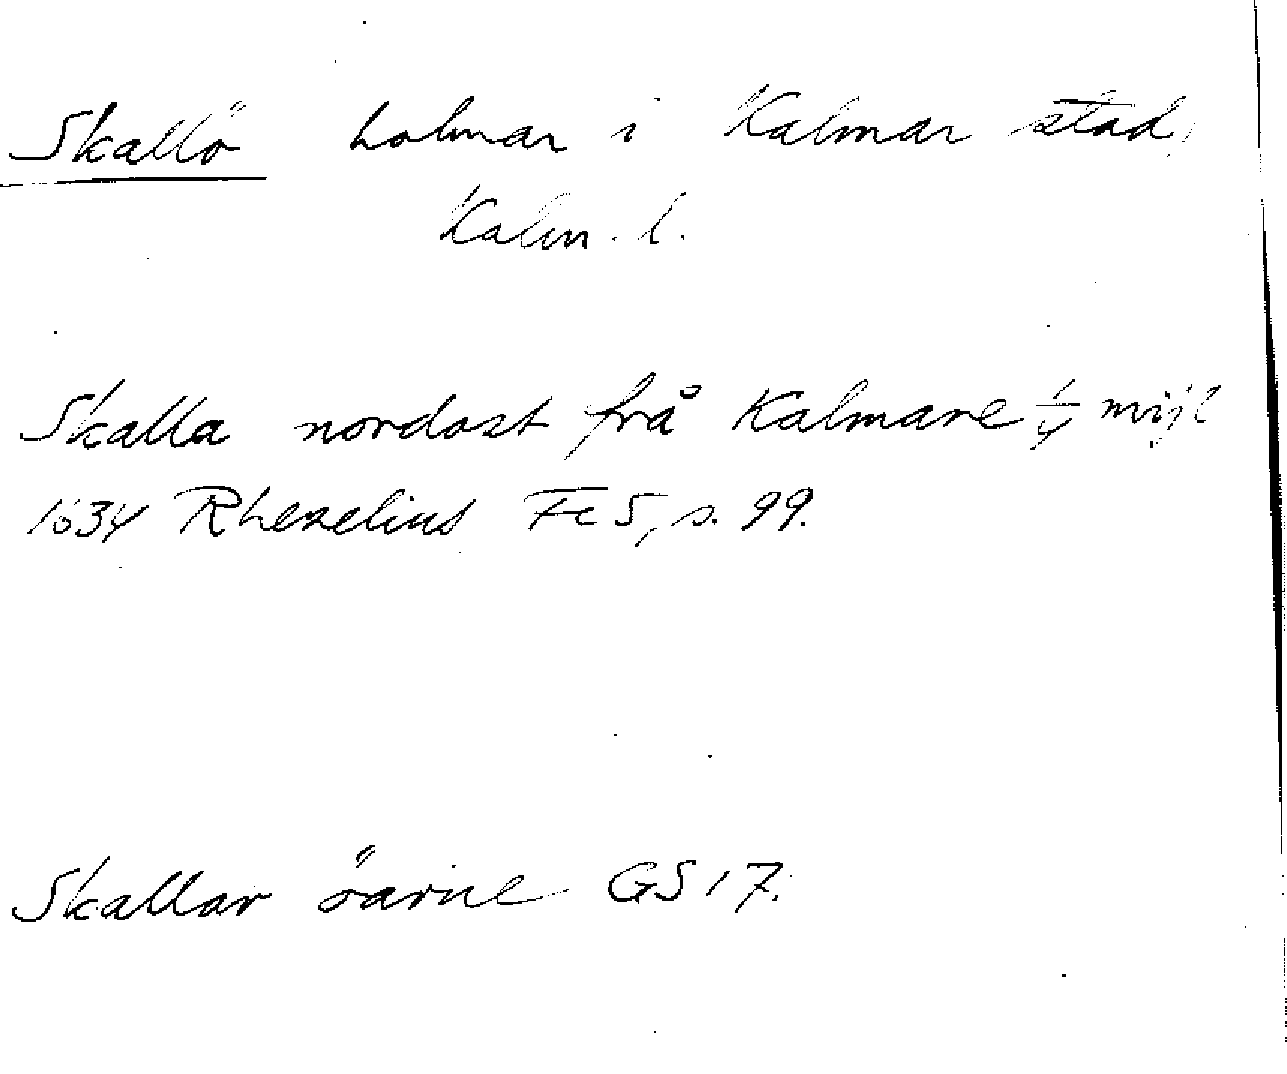 Skallö holmar i Kalmar stad,
Kalm. l.
Skalla nordost frå Kalmare 1/4 mijl
1634 Rhezelius Fc 5, s. 99.
Skallar öarne GS 17.